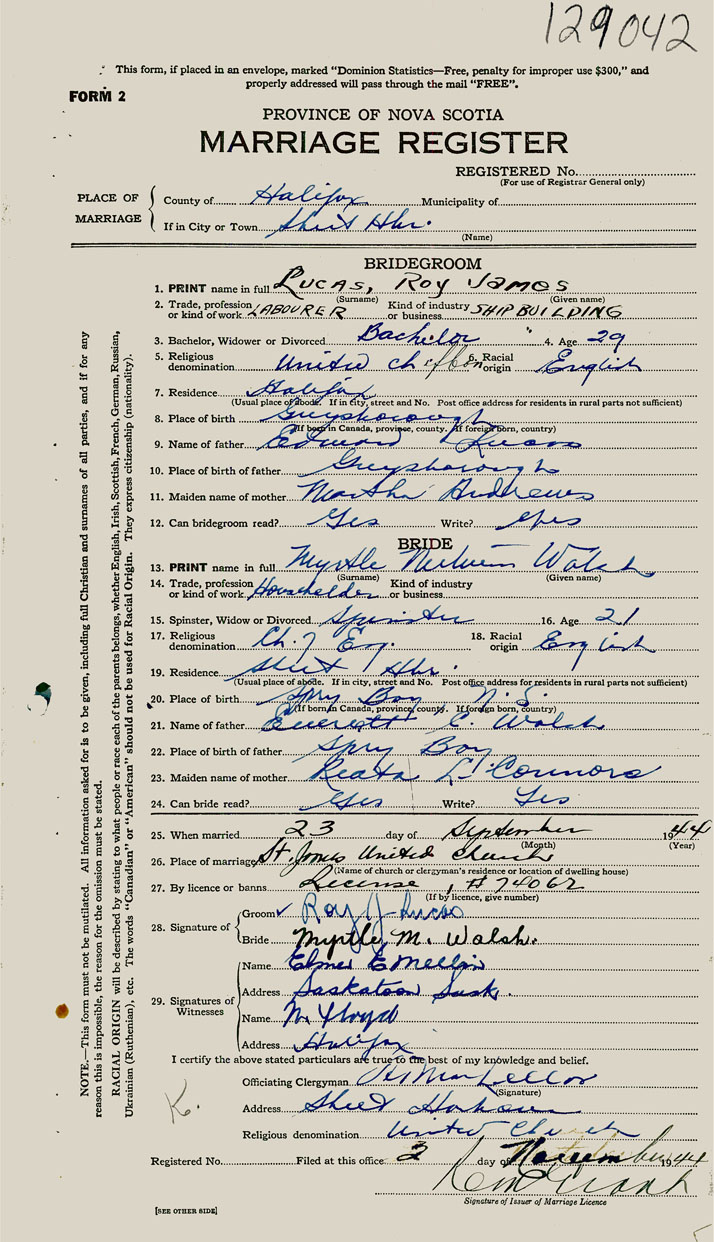 129042
This form, if placed in an envelope, marked "Dominion Statistics—Free, penalty for improper use $300," and
properly addressed will pass through the mail "FREE".
FORM 2
PROVINCE OF NOVA SCOTIA
MARRIAGE REGISTER
REGISTERED No.
(For use of Registrar General only)
PLACE OF MARRIAGE
County of Halifax Municipality of
If in City or Town Sheet Hbr.
(Name)
BRIDEGROOM
1. PRINT name in full LUCAS, ROY JAMES
(Surname) (Given name)
2. Trade, profession or kind of work LABOURER Kind of industry or business SHIPBUILDING
3. Bachelor, Widower or Divorced Bachelor 4. Age 29
5. Religious denomination United Ch 6. Racial origin English
7. Residence Halifax
(Usual place of abode. If in city, street and No. Post office address for residents in rural parts not sufficient)
8. Place of birth Guysborough
(If born in Canada, province, county. If foreign born, country)
9. Name of father Edward Lucas
10. Place of birth of father Guysborough
11. Maiden name of mother Martha Andrews
12. Can bridegroom read? Yes Write? Yes
BRIDE
13. PRINT name in full Myrtle Walsh
(Surname) (Given name)
14. Trade, profession or kind of work Householder Kind of industry or business
15. Spinster, Widow or Divorced Spinster 16. Age 21
17. Religious denomination Ch. of Eng. 18. Racial origin English
19. Residence Sheet Hbr.
(Usual place of abode. If in city, street and No. Post office address for residents in rural parts not sufficient)
20. Place of birth Spry Bay N. S.
(If born in Canada, province, county. If foreign born, country)
21. Name of father Everett C. Walsh
22. Place of birth of father Spry Bay
23. Maiden name of mother Reata O'Connors
24. Can bride read? Yes Write? Yes
25. When married 23 day of September 1944
(Month) (Year)
26. Place of marriage St. James United Church
(Name of church or clergyman's residence or location of dwelling house)
27. By licence or banns License, #74062
(If by licence, give number)
28. Signature of
Groom Roy J Lucas
Bride Myrtle M. Walsh.
29. Signatures of Witnesses
Name Elmer E
Address Saskatoon Sask.
Name N. Lloyd
Address Halifax
I certify the above stated particulars are true to the best of my knowledge and belief.
Officiating Clergyman
(Signature)
Address Sheet Harbour
Religious denomination United Church
K.
Registered No. Filed at this office 2 day of November 1944
Signature of Issuer of Marriage Licence
[SEE OTHER SIDE]
NOTE.—This form must not be mutilated. All information asked for is to be given, including full Christian and surnames of all parties, and if for any
reason this is impossible, the reason for the omission must be stated.
RACIAL ORIGIN will be described by stating to what people or race each of the parents belongs, whether English, Irish, Scottish, French, German, Russian,
Ukrainian (Ruthenian), etc. The words "Canadian" or "American" should not be used for Racial Origin. They express citizenship (nationality).